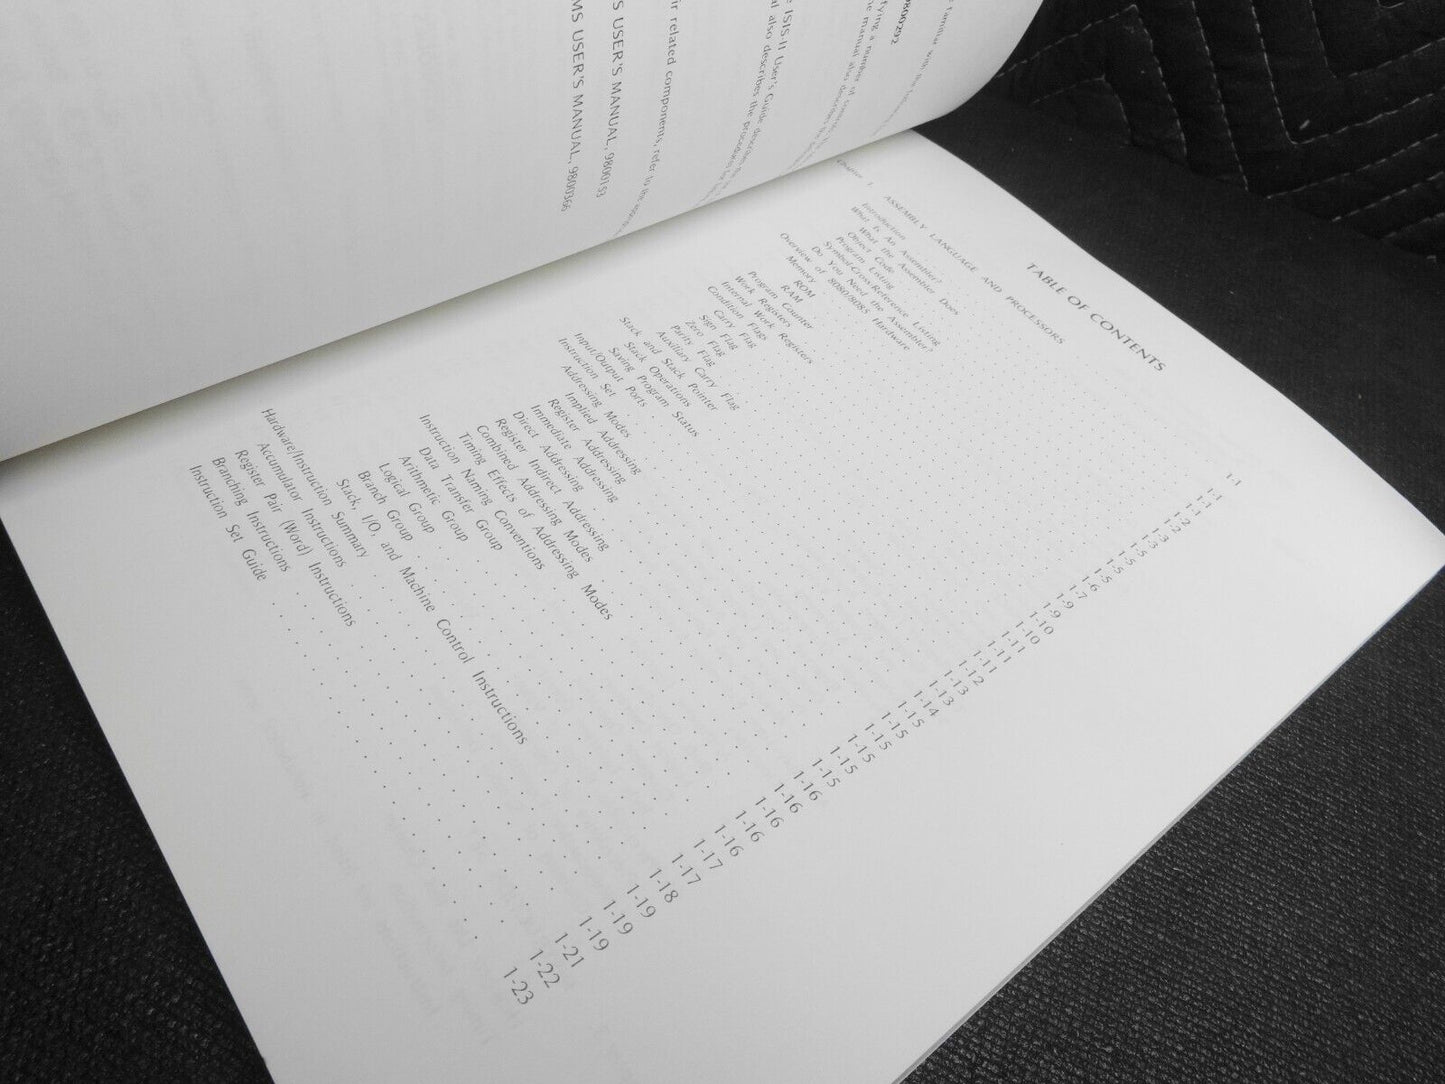 8600292
ISIS-II User's Guide
al also describes the procedures for
ir related components, refer to the
S USER'S MANUAL, 9800153
MS USER'S MANUAL, 9800366
TABLE OF CONTENTS
Chapter 1. ASSEMBLY LANGUAGE AND PROCESSORS 1-1
Introduction 1-1
What Is An Assembler? 1-1
What the Assembler Does 1-1
Object Code 1-2
Program Listing 1-2
Symbol-Cross-Reference Listing 1-3
Do You Need the Assembler? 1-3
Overview of 8080/8085 Hardware 1-5
Memory 1-5
ROM 1-5
RAM 1-5
Program Counter 1-6
Work Registers 1-7
Internal Work Registers 1-9
Condition Flags 1-9
Carry Flag 1-10
Sign Flag 1-10
Zero Flag 1-11
Parity Flag 1-11
Auxiliary Carry Flag 1-11
Stack and Stack Pointer 1-12
Stack Operations 1-13
Saving Program Status 1-13
Input/Output Ports 1-14
Instruction Set 1-15
Addressing Modes 1-15
Implied Addressing 1-15
Register Addressing 1-15
Immediate Addressing 1-15
Direct Addressing 1-15
Register Indirect Addressing 1-16
Combined Addressing Modes 1-16
Timing Effects of Addressing Modes 1-16
Instruction Naming Conventions 1-16
Data Transfer Group 1-16
Arithmetic Group 1-17
Logical Group 1-17
Branch Group 1-18
Stack, I/O, and Machine Control Instructions 1-19
Hardware/Instruction Summary 1-19
Accumulator Instructions 1-19
Register Pair (Word) Instructions 1-21
Branching Instructions 1-22
Instruction Set Guide 1-23